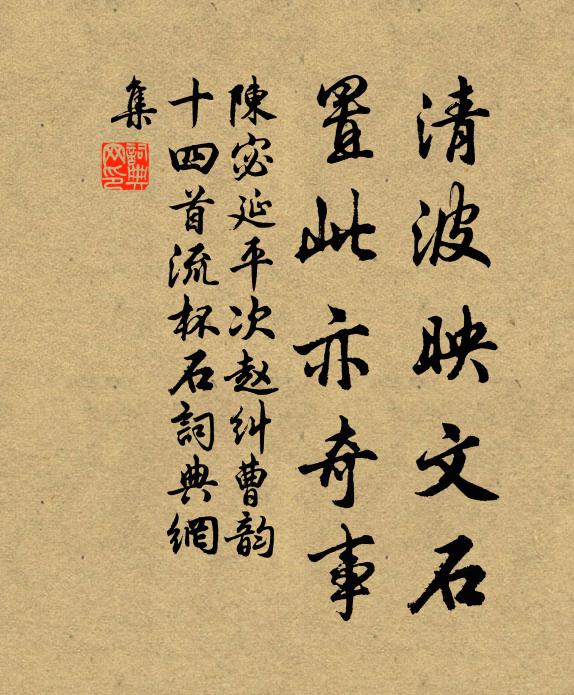 清波映文石
置此亦奇事
陳宓延平次赵纠曹韵
十四首流杯石詞典網
集
詞典網印